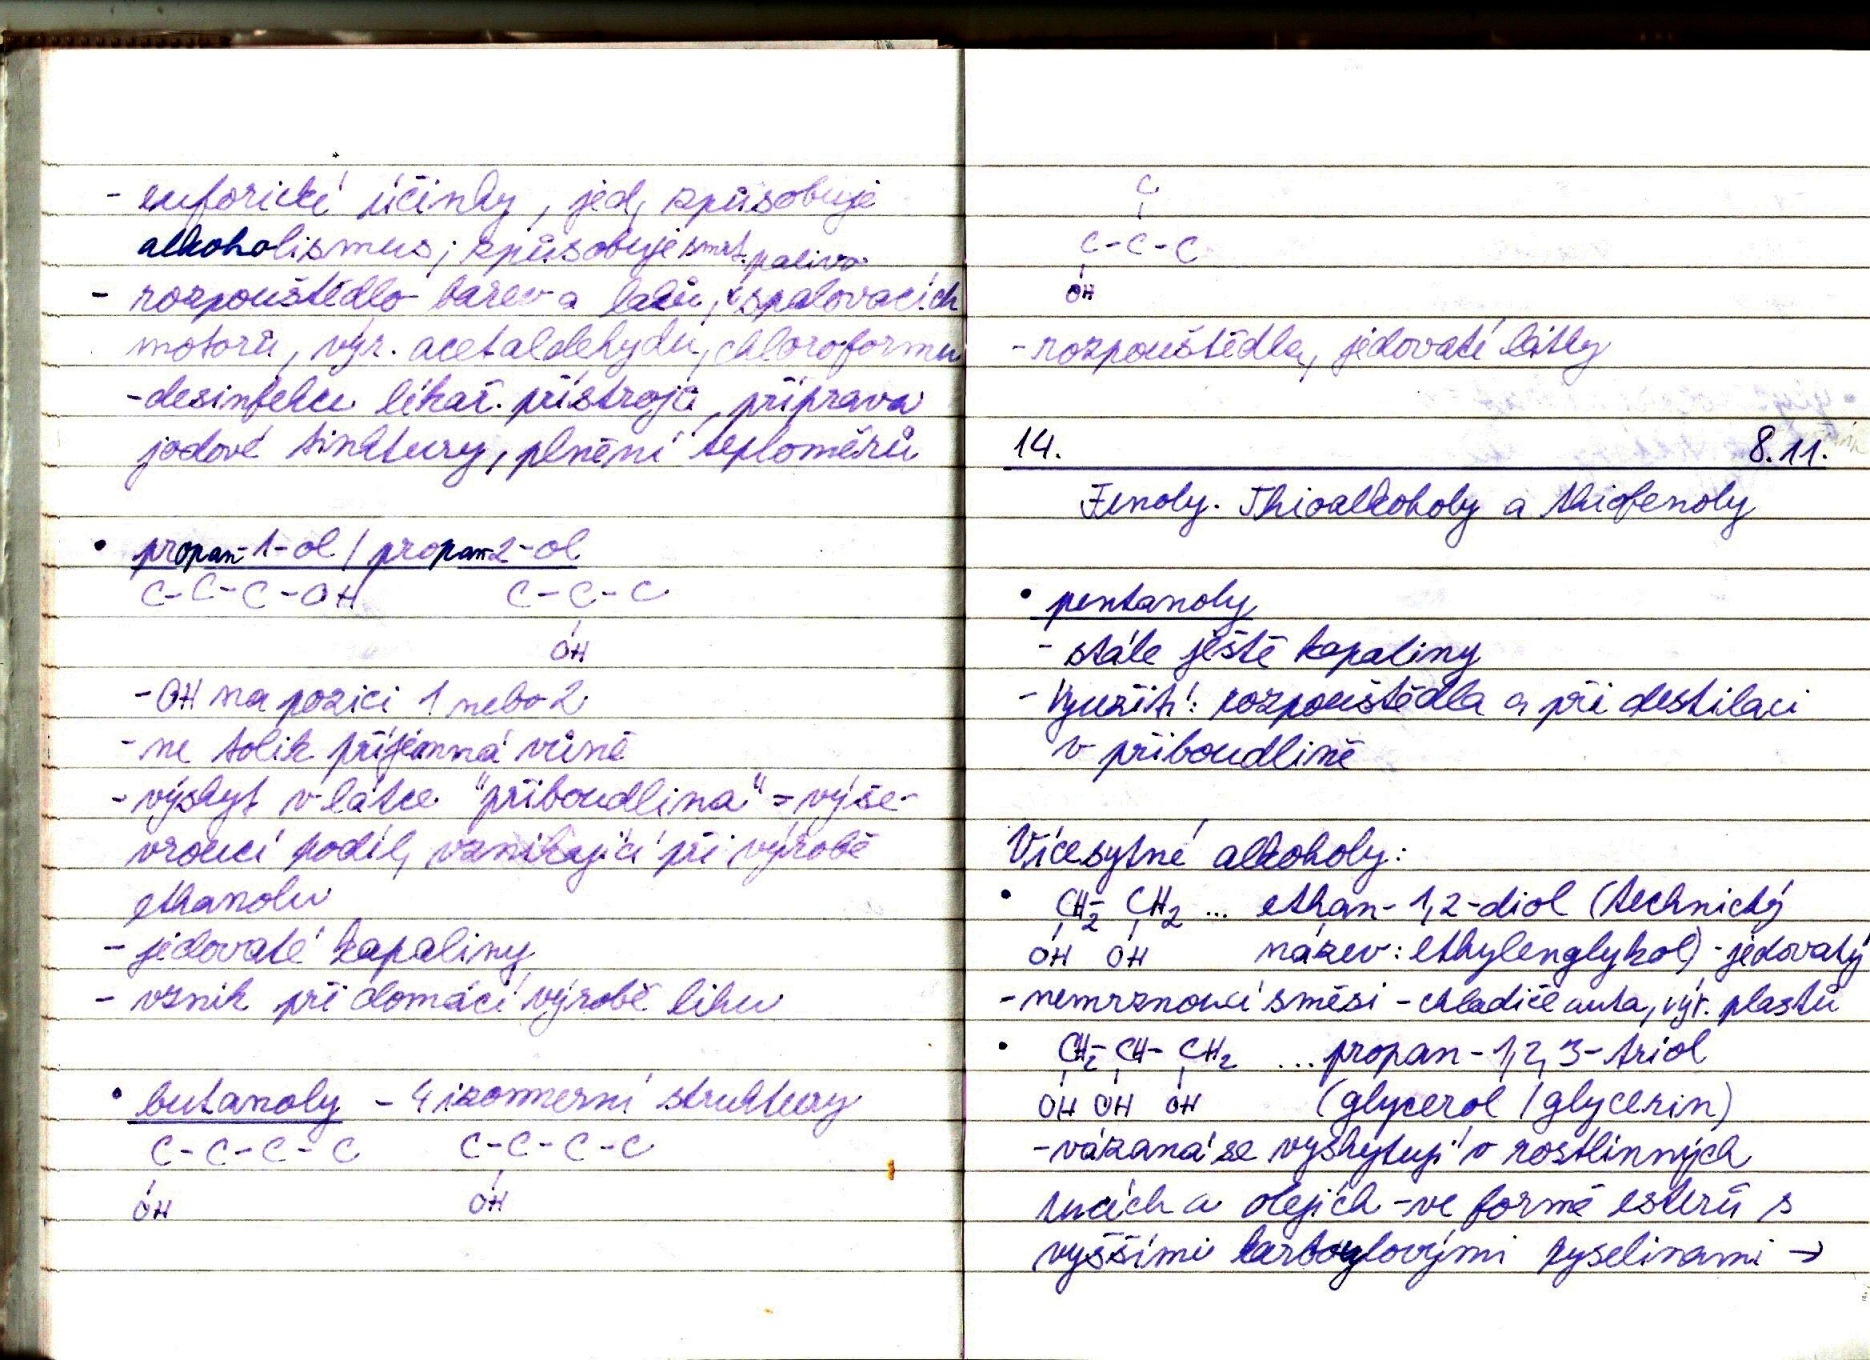 - euforické účinky, jed, způsobuje
alkoholismus; způsobuje smrt. palivo
- rozpouštědlo barev a laků, spalovacích
motorů, výr. acetaldehydu, chloroformu
- desinfekce lékař. přístrojů, příprava
jodové tinktury, plnění teploměrů
• propan-1-ol / propan-2-ol
C-C-C-OH C-C-C
OH
- OH na pozici 1 nebo 2
- ne tolik příjemná vůně
- výskyt v látce "přiboudlina" = výše-
vroucí podíl, vznikající při výrobě
ethanolu
- jedovaté kapaliny
- vznik při domácí výrobě lihu
• butanoly - 4 izomerní struktury
C-C-C-C C-C-C-C
OH OH
C
C-C-C
OH
- rozpouštědla, jedovaté látky
14. 8.11.
Fenoly. Thioalkoholy a thiofenoly
• pentanoly
- stále ještě kapaliny
- Využití: rozpouštědla a při destilaci
v přiboudlině
Vícesytné alkoholy:
• CH2- CH2 ... ethan-1,2-diol (technický
OH OH název: ethylenglykol) - jedovatý
- nemrznoucí směsi - chladiče auta, výr. plastů
• CH2-CH-CH2 ... propan-1,2,3-triol
OH OH OH (glycerol / glycerin)
- vázaná se vyskytují v rostlinných
tucích a olejích - ve formě esterů s
vyššími karboxylovými kyselinami →